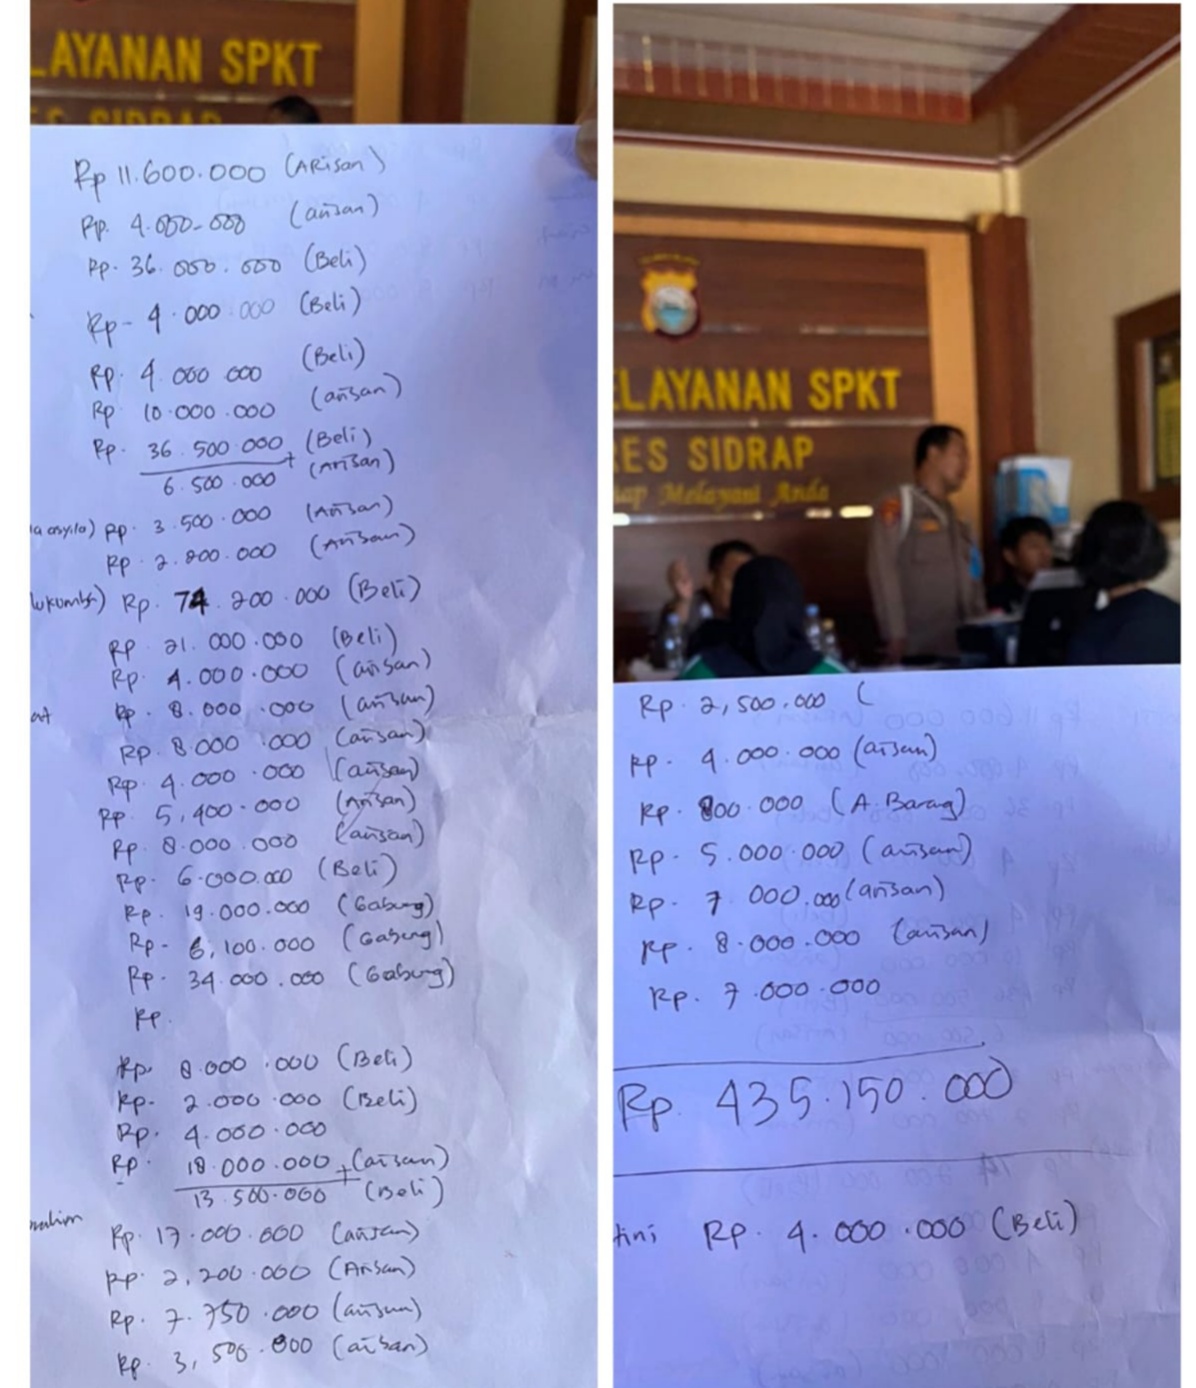 LAYANAN SPKT
ES SIDRAP
Rp 11.600.000 (ARisan)
Rp. 4.000.000 (arisan)
Rp. 36.000.000 (Beli)
Rp- 4.000.000 (Beli)
Rp. 4.000.000 (Beli)
Rp 10.000.000 (arisan)
Rp. 36.500.000 + (Beli)
6.500.000 (Arisan)
Rp. 3.500.000 (Arisan)
Rp. 2.800.000 (Arisan)
Rp. 74.200.000 (Beli)
Rp. 21.000.000 (Beli)
Rp. 4.000.000 (arisan)
Rp. 8.000.000 (arisan)
Rp. 8.000.000 (arisan)
Rp. 4.000.000 (arisan)
Rp. 5,400.000 (Arisan)
Rp. 8.000.000 (arisan)
Rp. 6.000.000 (Beli)
Rp. 19.000.000 (Gabung)
Rp- 6,100.000 (Gabung)
Rp. 34.000.000 (Gabung)
Rp.
Rp. 8.000.000 (Beli)
Rp- 2.000.000 (Beli)
Rp. 4.000.000
Rp. 18.000.000 + (arisan)
13.500.000 (Beli)
Rp. 17.000.000 (arisan)
Rp. 2,200.000 (Arisan)
Rp. 7.750.000 (arisan)
Rp. 3,500.000 (arisan)
ELAYANAN SPKT
RES SIDRAP
ap Melayani Anda
Rp. 2,500.000 (
Rp. 4.000.000 (arisan)
Rp. 800.000 (A. Barang)
Rp- 5.000.000 (arisan)
Rp. 7.000.000 (arisan)
Rp. 8.000.000 (arisan)
Rp. 7.000.000
Rp. 435.150.000
tini Rp. 4.000.000 (Beli)